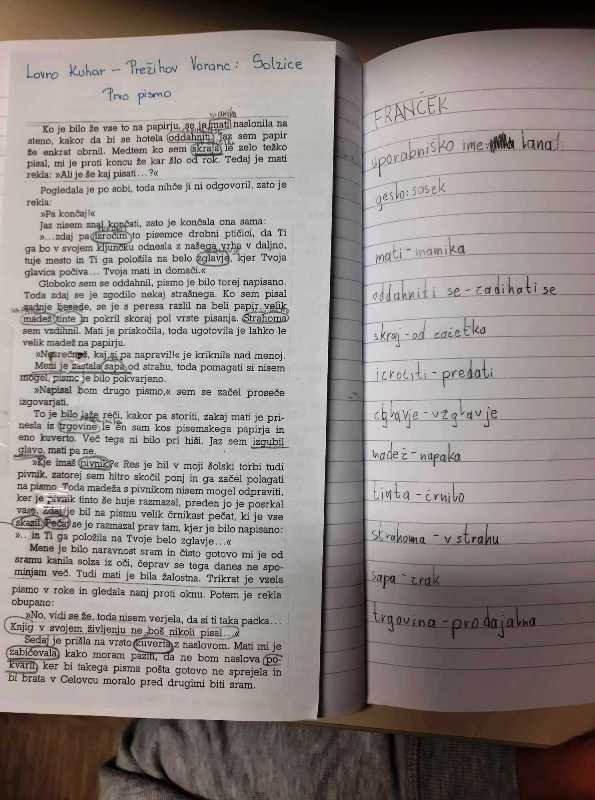 Lovro Kuhar – Prežihov Voranc: Solzice
Prvo pismo
Ko je bilo že vse to na papirju, se je mati naslonila na
steno, kakor da bi se hotela oddahniti. Jaz sem papir
že enkrat obrnil. Medtem ko sem skraja le zelo težko
pisal, mi je proti koncu že kar šlo od rok. Tedaj je mati
rekla: »Ali je še kaj pisati…?«
Pogledala je po sobi, toda nihče ji ni odgovoril, zato je
rekla:
»Pa končaj!«
Jaz nisem znal končati, zato je končala ona sama:
»…zdaj pa izročim to pisemce drobni ptičici, da Ti
ga bo v svojem kljunčku odnesla z našega vrha v daljno,
tuje mesto in Ti ga položila na belo zglavje, kjer Tvoja
glavica počiva… Tvoja mati in domači.«
Globoko sem se oddahnil, pismo je bilo torej napisano.
Toda zdaj se je zgodilo nekaj strašnega. Ko sem pisal
zadnje besede, se je s peresa razlil na beli papir velik
madež tinte in pokril skoraj pol vrste pisanja. Strahoma
sem vzdihnil. Mati je priskočila, toda ugotovila je lahko le
velik madež na papirju.
»Nesrečnež, kaj si pa napravil!« je kriknila nad menoj.
Meni je zastala sapa od strahu, toda pomagati si nisem
mogel, pismo je bilo pokvarjeno.
»Napisal bom drugo pismo,« sem se začel proseče
izgovarjati.
To je bilo laže reči, kakor pa storiti, zakaj mati je pri-
nesla iz trgovine le en sam kos pisemskega papirja in
eno kuverto. Več tega ni bilo pri hiši. Jaz sem izgubil
glavo, mati pa ne.
»Kje imaš pivnik?« Res je bil v moji šolski torbi tudi
pivnik, zatorej sem hitro skočil ponj in ga začel polagati
na pismo. Toda madeža s pivnikom nisem mogel odpraviti,
ker je pivnik tinto še huje razmazal, preden jo je posrkal
vase. Zdaj je bil na pismu velik črnikast pečat, ki je vse
skazil. Pečat se je razmazal prav tam, kjer je bilo napisano:
»…in Ti ga položila na Tvoje belo zglavje…«
Mene je bilo naravnost sram in čisto gotovo mi je od
sramu kanila solza iz oči, čeprav se tega danes ne spo-
minjam več. Tudi mati je bila žalostna. Trikrat je vzela
pismo v roke in gledala nanj proti oknu. Potem je rekla
obupano:
»No, vidi se že, toda nisem verjela, da si ti taka packa…
Knjig v svojem življenju ne boš nikoli pisal…«
Sedaj je prišla na vrsto kuverta z naslovom. Mati mi je
zabičevala, kako moram paziti, da ne bom naslova po-
kvaril, ker bi takega pisma pošta gotovo ne sprejela in
bi brata v Celovcu moralo pred drugimi biti sram.
FRANČEK
uporabniško ime: lana1
geslo: sosek
mati - mamika
oddahniti se - zadihati se
skraj - od začetka
izročiti - predati
zglavje - vzglavje
madež - napaka
tinta - črnilo
strahoma - v strahu
sapa - zrak
trgovina - prodajalna